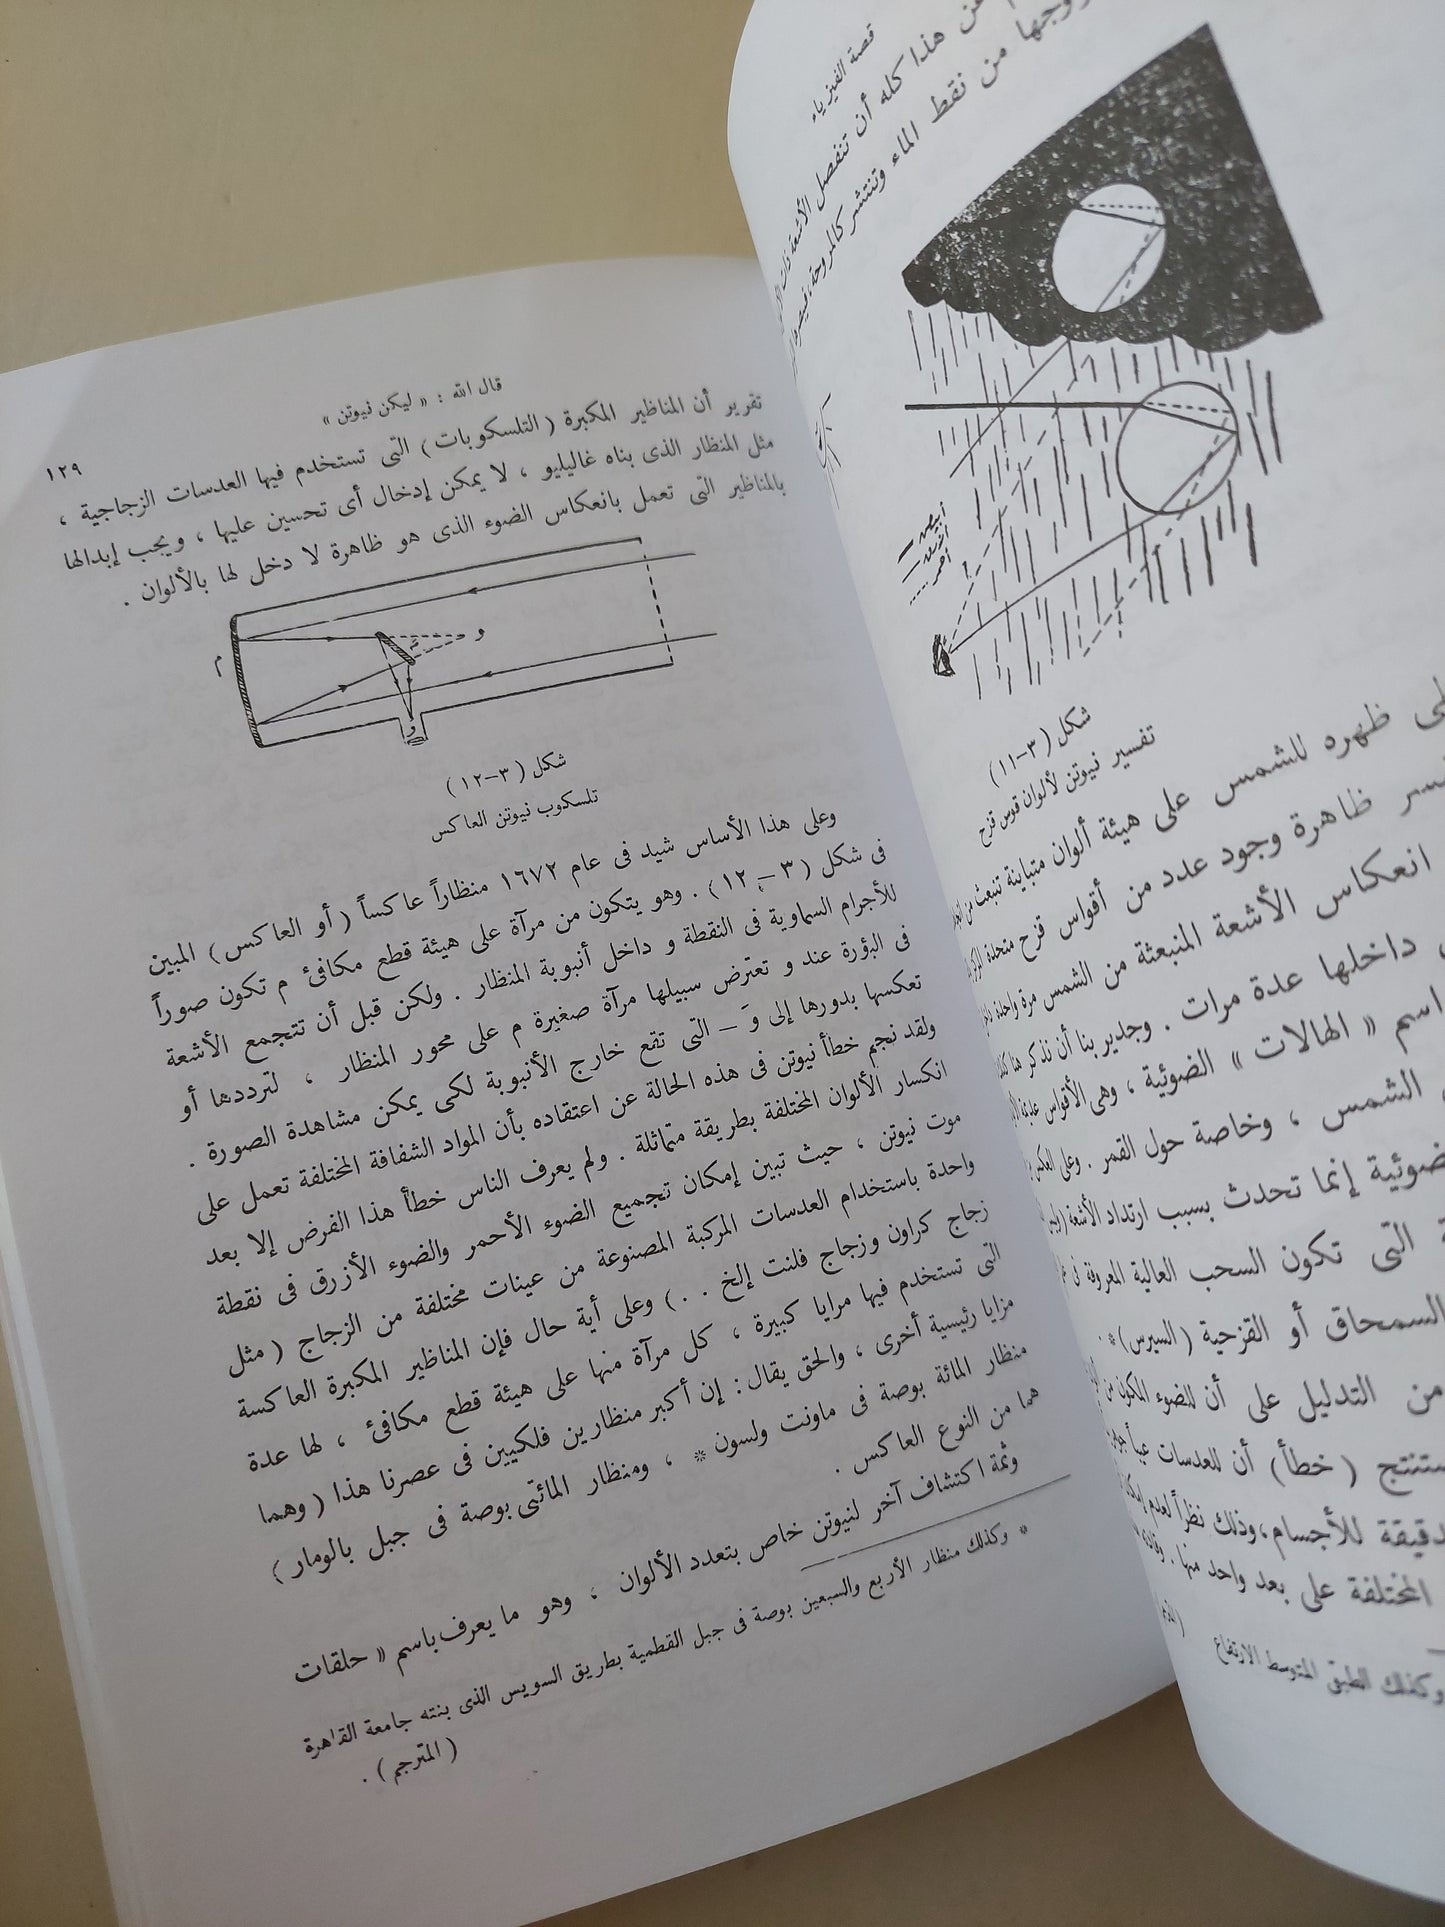 قصة الفيزياء
عن هذا كله أن تنفصل الأشعة ذات
من نقط الماء وتنتشر كالمروحة،
أبيض
أحمر
شكل (٣–١١)
تفسير نيوتن لألوان قوس قزح
ظهره للشمس على هيئة ألوان متباينة تنبعث من
ظاهرة وجود عدد من أقواس قزح متحدة
انعكاس الأشعة المنبعثة من الشمس مرة واحدة
داخلها عدة مرات . وجدير بنا أن نذكر هنا
اسم « الهالات » الضوئية ، وهى الأقواس
الشمس ، وخاصة حول القمر . وعلى العكس
إنما تحدث بسبب ارتداد الأشعة
التى تكون السحب العالية المعروفة
السمحاق أو القزحية (السيرس)* .
من التدليل على أن للضوء المكون من
(خطأ) أن للعدسات عيباً
للأجسام، وذلك نظراً لعدم
المختلفة على بعد واحد منها .
وكذلك الطبق المتوسط الارتفاع
قال الله : « ليكن نيوتن »
١٢٩
تقرير أن المناظير المكبرة (التلسكوبات) التى تستخدم فيها العدسات الزجاجية ،
مثل المنظار الذى بناه غاليليو ، لا يمكن إدخال أى تحسين عليها ، ويجب إبدالها
بالمناظير التى تعمل بانعكاس الضوء الذى هو ظاهرة لا دخل لها بالألوان .
م
و
شكل (٣–١٢)
تلسكوب نيوتن العاكس
وعلى هذا الأساس شيد فى عام ١٦٧٢ منظاراً عاكساً (أو العاكس) المبين
فى شكل (٣ – ١٢) . وهو يتكون من مرآة على هيئة قطع مكافئ م تكون صوراً
للأجرام السماوية فى النقطة و داخل أنبوبة المنظار . ولكن قبل أن تتجمع الأشعة
فى البؤرة عند و تعترض سبيلها مرآة صغيرة م على محور المنظار ، لترددها أو
تعكسها بدورها إلى وَ – التى تقع خارج الأنبوبة لكى يمكن مشاهدة الصورة .
ولقد نجم خطأ نيوتن فى هذه الحالة عن اعتقاده بأن المواد الشفافة المختلفة تعمل على
انكسار الألوان المختلفة بطريقة متماثلة . ولم يعرف الناس خطأ هذا الفرض إلا بعد
موت نيوتن ، حيث تبين إمكان تجميع الضوء الأحمر والضوء الأزرق فى نقطة
واحدة باستخدام العدسات المركبة المصنوعة من عينات مختلفة من الزجاج (مثل
زجاج كراون وزجاج فلنت إلخ . .) وعلى أية حال فإن المناظير المكبرة العاكسة
التى تستخدم فيها مرايا كبيرة ، كل مرآة منها على هيئة قطع مكافئ ، لها عدة
مزايا رئيسية أخرى ، والحق يقال : إن أكبر منظارين فلكيين فى عصرنا هذا (وهما
منظار المائة بوصة فى ماونت ولسون * ، ومنظار المائتى بوصة فى جبل بالومار)
هما من النوع العاكس .
وثمة اكتشاف آخر لنيوتن خاص بتعدد الألوان ، وهو ما يعرف باسم « حلقات
* وكذلك منظار الأربع والسبعين بوصة فى جبل القطمية بطريق السويس الذى بنته جامعة القاهرة
(المترجم) .